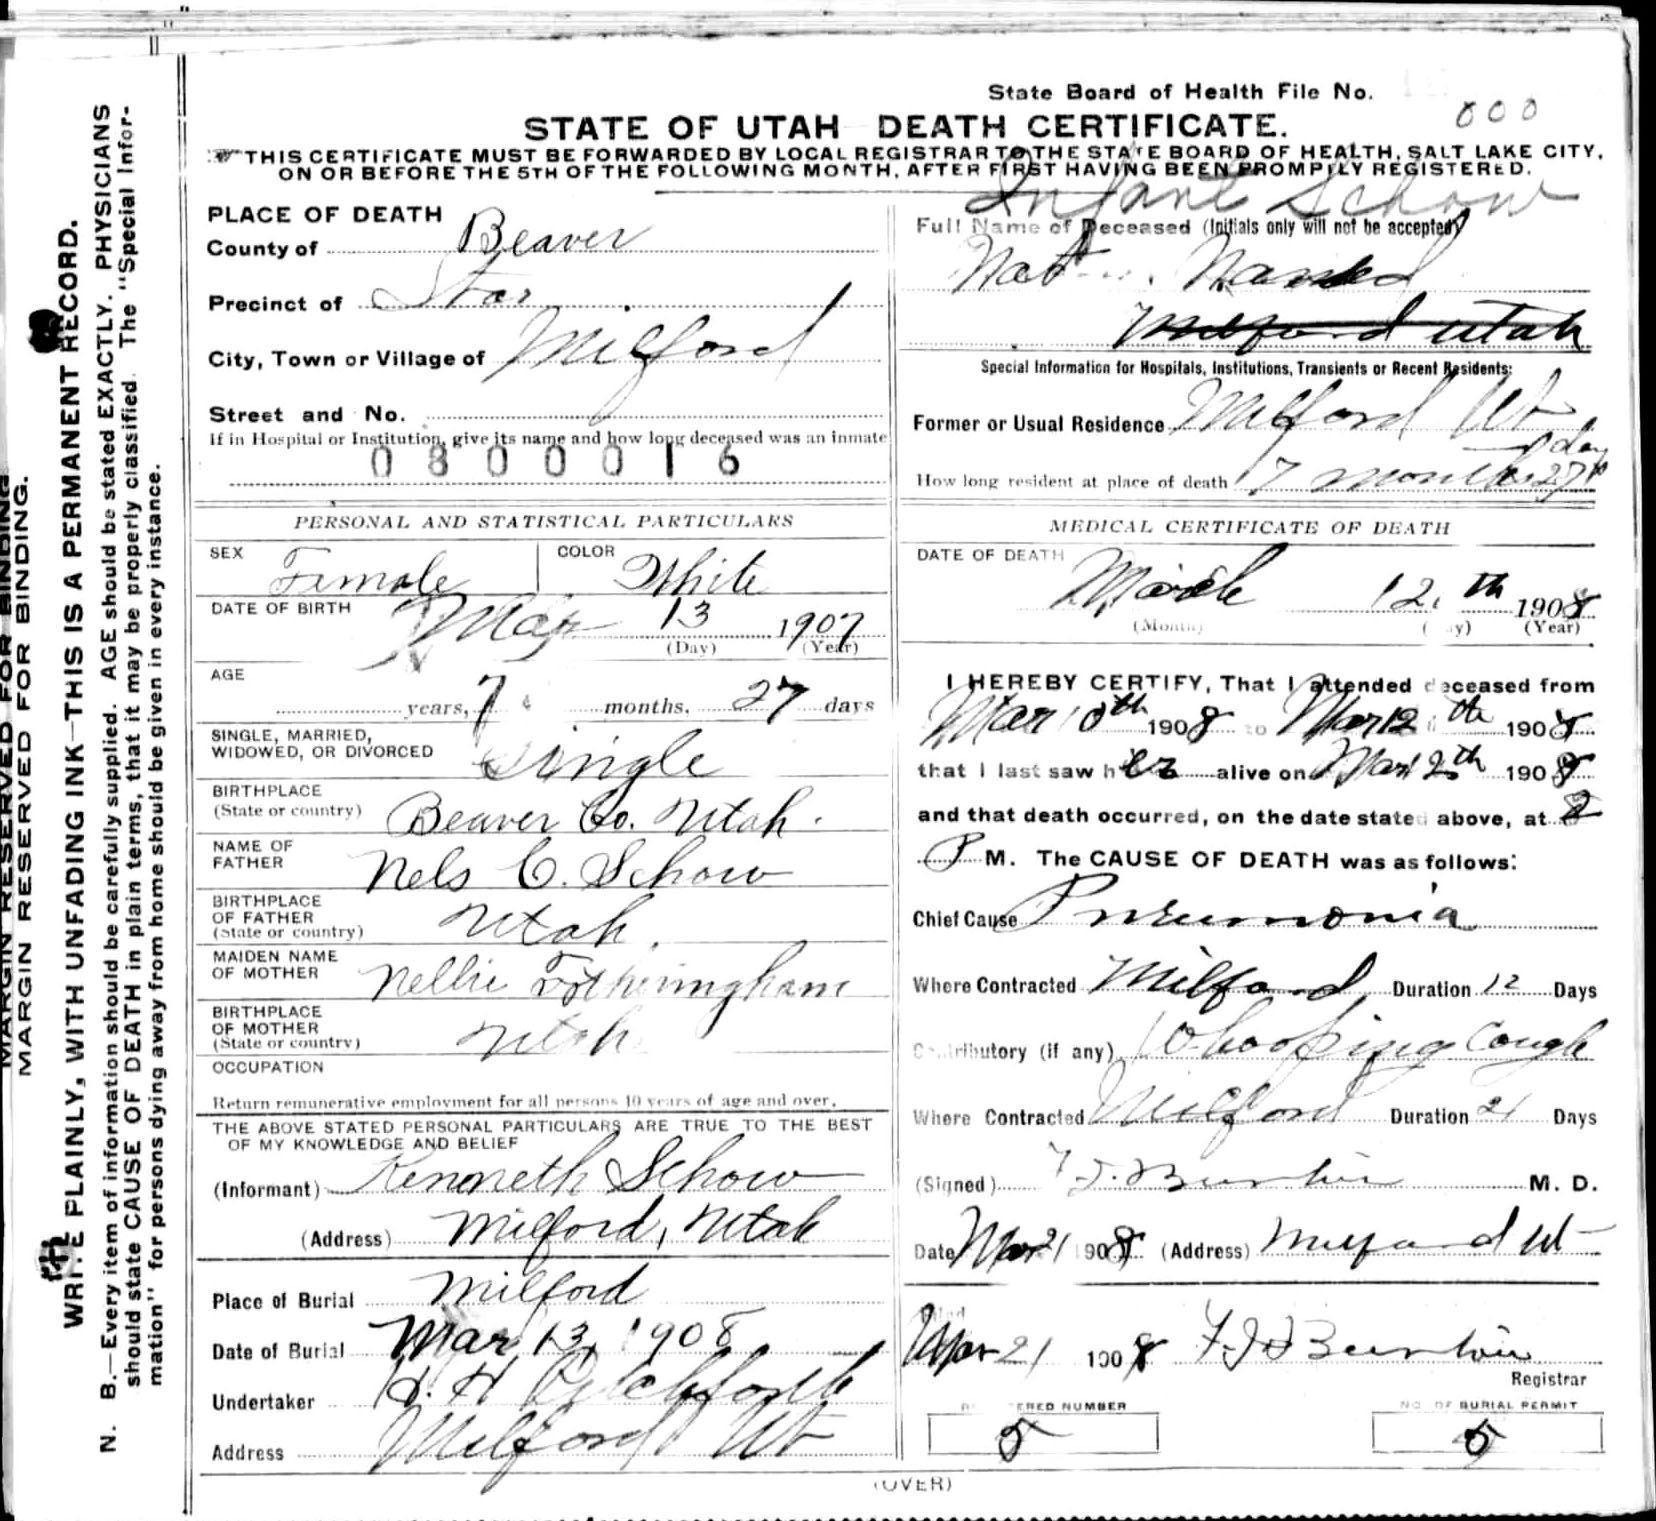 State Board of Health File No.
000
STATE OF UTAH DEATH CERTIFICATE.
THIS CERTIFICATE MUST BE FORWARDED BY LOCAL REGISTRAR TO THE STATE BOARD OF HEALTH, SALT LAKE CITY,
ON OR BEFORE THE 5TH OF THE FOLLOWING MONTH, AFTER FIRST HAVING BEEN PROMPTLY REGISTERED.
PLACE OF DEATH
County of Beaver
Precinct of Star
City, Town or Village of Milford
Street and No.
If in Hospital or Institution, give its name and how long deceased was an inmate
0800016
PERSONAL AND STATISTICAL PARTICULARS
SEX Female COLOR White
DATE OF BIRTH May 13 1907
(Day) (Year)
AGE
years, 7 months, 27 days
SINGLE, MARRIED,
WIDOWED, OR DIVORCED Single
BIRTHPLACE
(State or country) Beaver Co. Utah.
NAME OF
FATHER Nels C. Schow
BIRTHPLACE
OF FATHER
(State or country) Utah.
MAIDEN NAME
OF MOTHER Nellie Fotheringham
BIRTHPLACE
OF MOTHER
(State or country) Utah
OCCUPATION
Return remunerative employment for all persons 10 years of age and over.
THE ABOVE STATED PERSONAL PARTICULARS ARE TRUE TO THE BEST
OF MY KNOWLEDGE AND BELIEF
(Informant) Kenneth Schow
(Address) Milford, Utah
Place of Burial Milford
Date of Burial Mar 13, 1908
Undertaker H. H.
Address Milford Ut
Infant Schow
Full Name of Deceased (Initials only will not be accepted)
Not Named
Milford Utah
Special Information for Hospitals, Institutions, Transients or Recent Residents:
Former or Usual Residence Milford Ut
day
How long resident at place of death 7 months 27
MEDICAL CERTIFICATE OF DEATH
DATE OF DEATH
March 12th 1908
(Month) (Year)
I HEREBY CERTIFY, That I attended deceased from
Mar 10th 1908 to Mar 12th 1908
that I last saw her alive on Mar 12th 1908
and that death occurred, on the date stated above, at 2
P M. The CAUSE OF DEATH was as follows:
Chief Cause Pneumonia
Where Contracted Milford Duration 12 Days
Contributory (if any) Whooping Cough
Where Contracted Milford Duration 21 Days
(Signed) M. D.
Date Mar 21 1908 (Address) Milford Ut
Mar 21 1908
Registrar
REGISTERED NUMBER
5
NO. OF BURIAL PERMIT
5
(OVER)
MARGIN RESERVED FOR BINDING
MARGIN RESERVED FOR BINDING.
WRITE PLAINLY, WITH UNFADING INK—THIS IS A PERMANENT RECORD.
N. B.—Every item of information should be carefully supplied. AGE should be stated EXACTLY. PHYSICIANS
should state CAUSE OF DEATH in plain terms, that it may be properly classified. The "Special Infor-
mation" for persons dying away from home should be given in every instance.